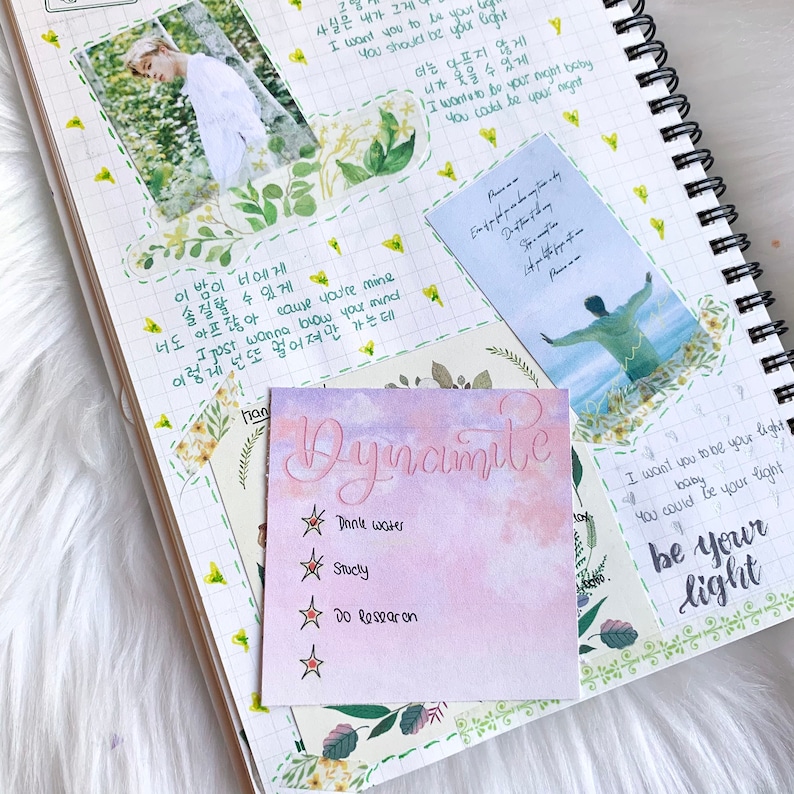 사실은 내가 그게 안
I want you to be your light
You should be your light
너는 아프지 않게
너가 웃을 수 있게
I want to be your night baby
You could be your night
Promise me now
Promise me now
이 밤이 너에게
솔직할 수 있게
너도 아프잖아 cause you're mine
I just wanna blow your mind
이렇게 넌 또 멀어져만 가는데
Dynamite
Drink water
Study
Do Research
I want you to be your light
baby
You could be your light
be your
light